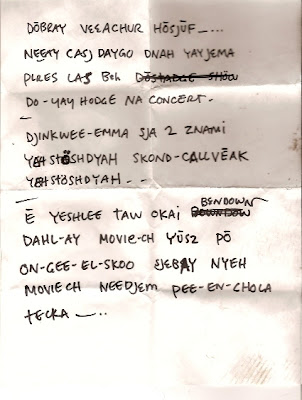 DŌBRAY VEEACHUR HŌSJŪF_....
NEEGTY CASJ DAYGO DNAH YAYJEMA
PLRES LAS BOH DŌSTADGE SHŌW
DO-YAY HODGE NA CONCERT.
DJINKWEE-EMMA SJA 2 ZNAMI
YEHSTŌSHDYAH SKOND-CALLVEAK
YEHSTŌSHDYAH. -
BENDOWN
Ē YESHLEE TAW OKAI DOWNDOW
DAHL-AY MOVIE-CH YŪSZ PŌ
ON-GEE-EL-SKOO EJEBAY NYEH
MOVIECH NEEDJEM PEE-EN-CHOLA
TECKA _....